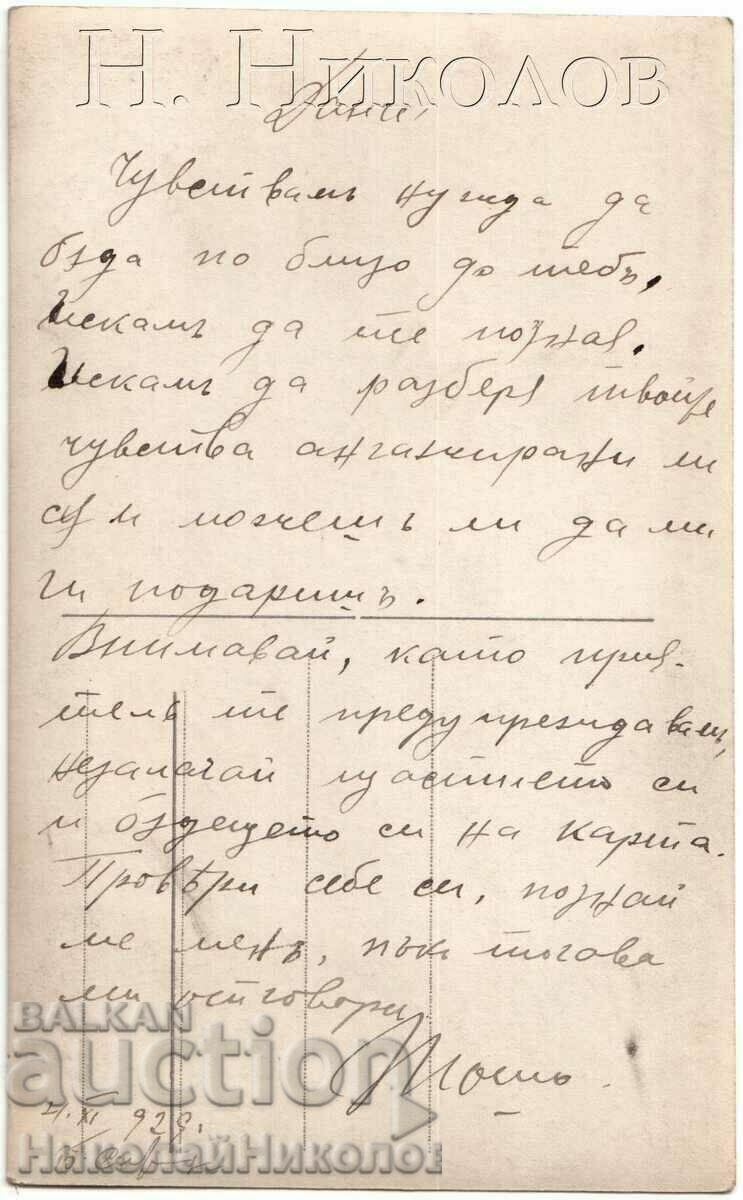 Н. Николов
Чувствамъ нужда да
бѫда по близо до тебъ,
Искамъ да те позная.
Искамъ да разберя твоите
чувства ангажирани ли
сѫ и можешъ ли да ми
ги подаришъ.
Внимавай, като прия-
тель те предупреждавамъ,
незалагай щастието си
и бѫдещето си на карта.
Провѣри себе си, познай
ме менъ, пък тогава
ми отговори
BALKAN
auction
НиколайНиколов